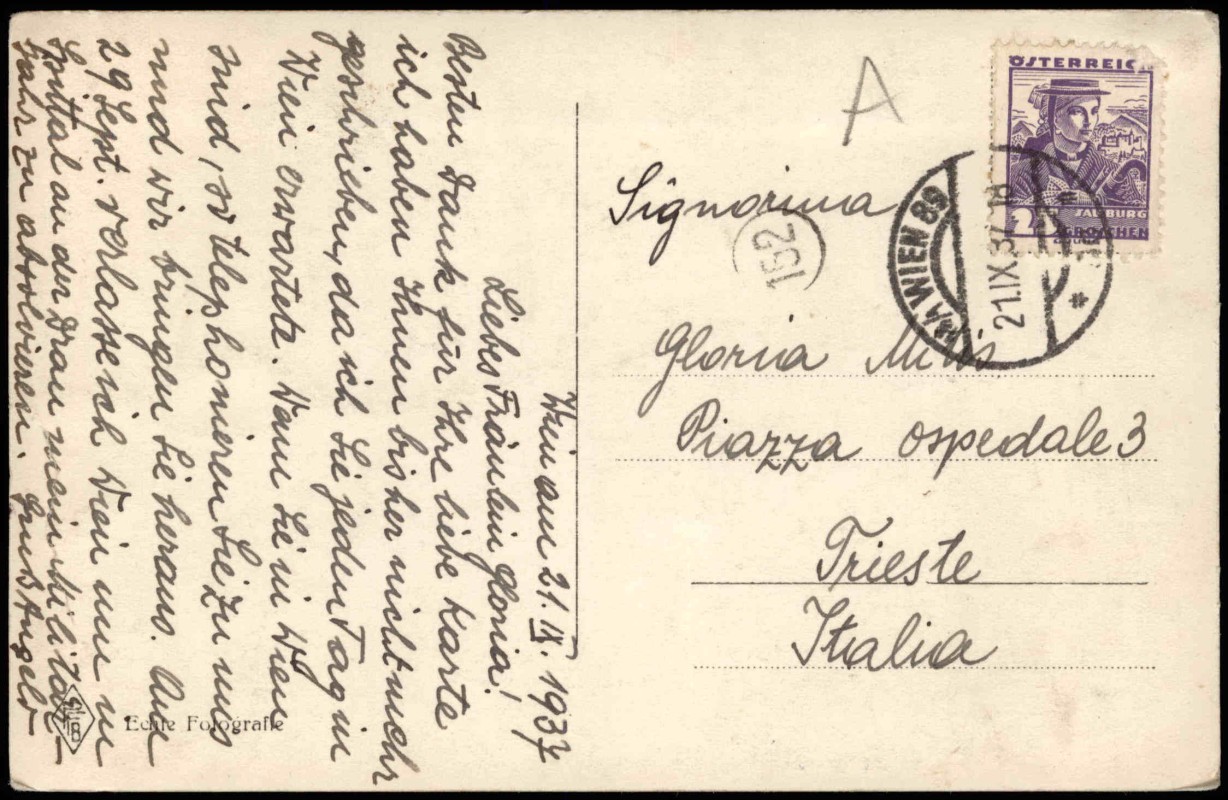 Wien am 21. IX. 1937
Liebes Fräulein Gloria!
Besten Dank für Ihre liebe Karte
ich haben Ihnen bisher nicht mehr
geschrieben, da ich Sie jeden Tag in
Wien erwartete. Wenn Sie in Wien
sind, so telephonieren Sie zu uns
und wir bringen Sie heraus. Am
29 Sept. verlasse ich Wien um in
Spittal an der Drau mein Militär-
jahr zu absolvieren.
Echte Fotografie
A
ÖSTERREICH
SALZBURG
GROSCHEN
WIEN 89
21.IX.37
152
Signorina
Gloria
Piazza ospedale 3
Trieste
Italia